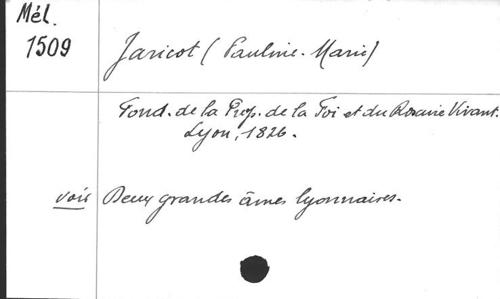 Mél.
1509
Jaricot (Pauline-Marie)
Fond. de la Prop. de la Foi et du Rosaire Vivant.
Lyon, 1826.
voir Deux grandes âmes lyonnaises.